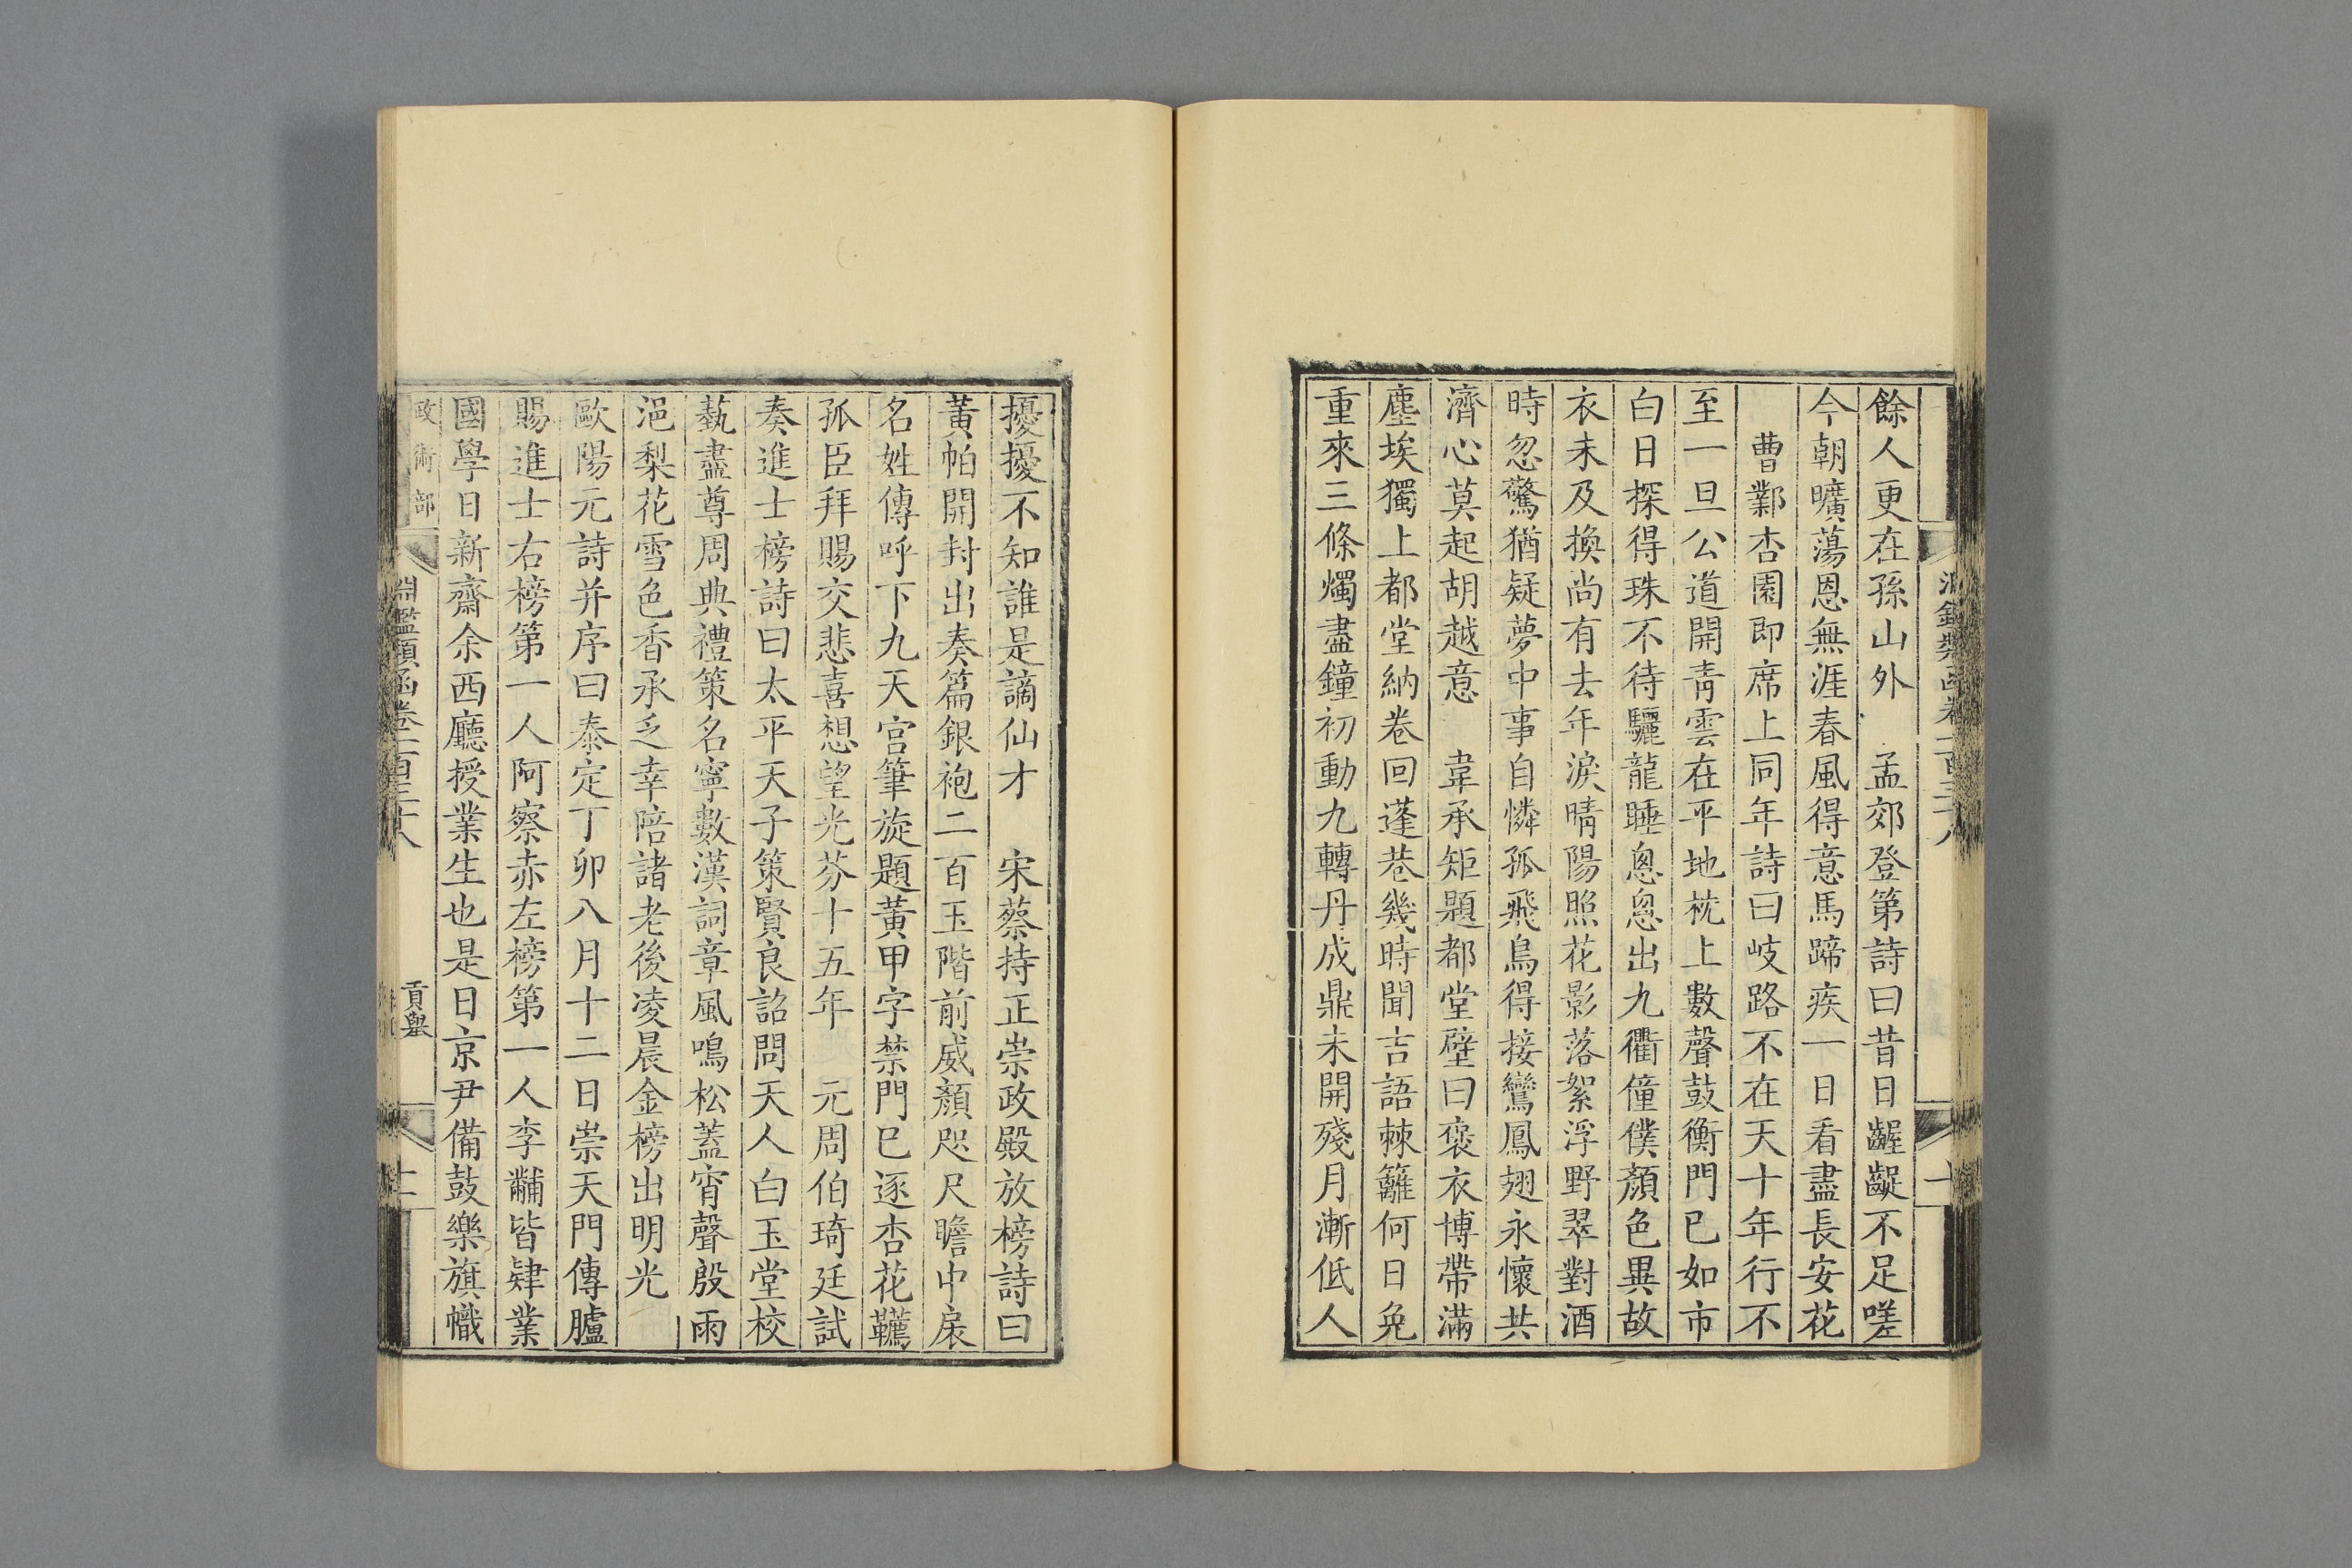 餘人更在孫山外　孟郊登第詩曰昔日齷齪不足嗟
今朝曠蕩恩無涯春風得意馬蹄疾一日看盡長安花
曹鄴杏園即席上同年詩曰岐路不在天十年行不
至一旦公道開青雲在平地枕上數聲鼓衡門已如市
白日探得珠不待驪龍睡怱怱出九衢僮僕顏色異故
衣未及換尚有去年淚晴陽照花影落絮浮野翠對酒
時忽驚猶疑夢中事自憐孤飛鳥得接鸞鳳翅永懷共
濟心莫起胡越意　韋承矩題都堂壁曰褒衣博帶滿
塵埃獨上都堂納卷回蓬巷幾時聞吉語棘籬何日免
重來三條燭盡鐘初動九轉丹成鼎未開殘月漸低人
擾擾不知誰是謫仙才　宋蔡持正崇政殿放榜詩曰
黃帕開封出奏篇銀袍二百玉階前威顏咫尺瞻中扆
名姓傳呼下九天宮筆旋題黃甲字禁門已逐杏花韉
孤臣拜賜交悲喜想望光芬十五年　元周伯琦廷試
奏進士榜詩曰太平天子策賢良詔問天人白玉堂校
藝盡尊周典禮策名寧數漢詞章風鳴松蓋宵聲殷雨
浥梨花雪色香承乏幸陪諸老後凌晨金榜出明光
歐陽元詩并序曰泰定丁卯八月十二日崇天門傳臚
賜進士右榜第一人阿察赤左榜第一人李黼皆肄業
國學日新齋余西廳授業生也是日京尹備鼓樂旗幟
政術部
淵鑑類函卷一百三十八
貢舉